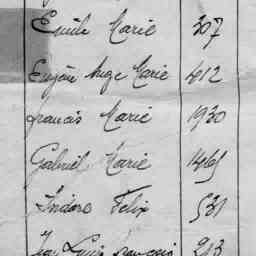 Emile Marie 307
Eugène Ange Marie 1012
francis Marie 1930
Gabriel Marie 1465
Isidore Felix 531
Jean Louis francois 213